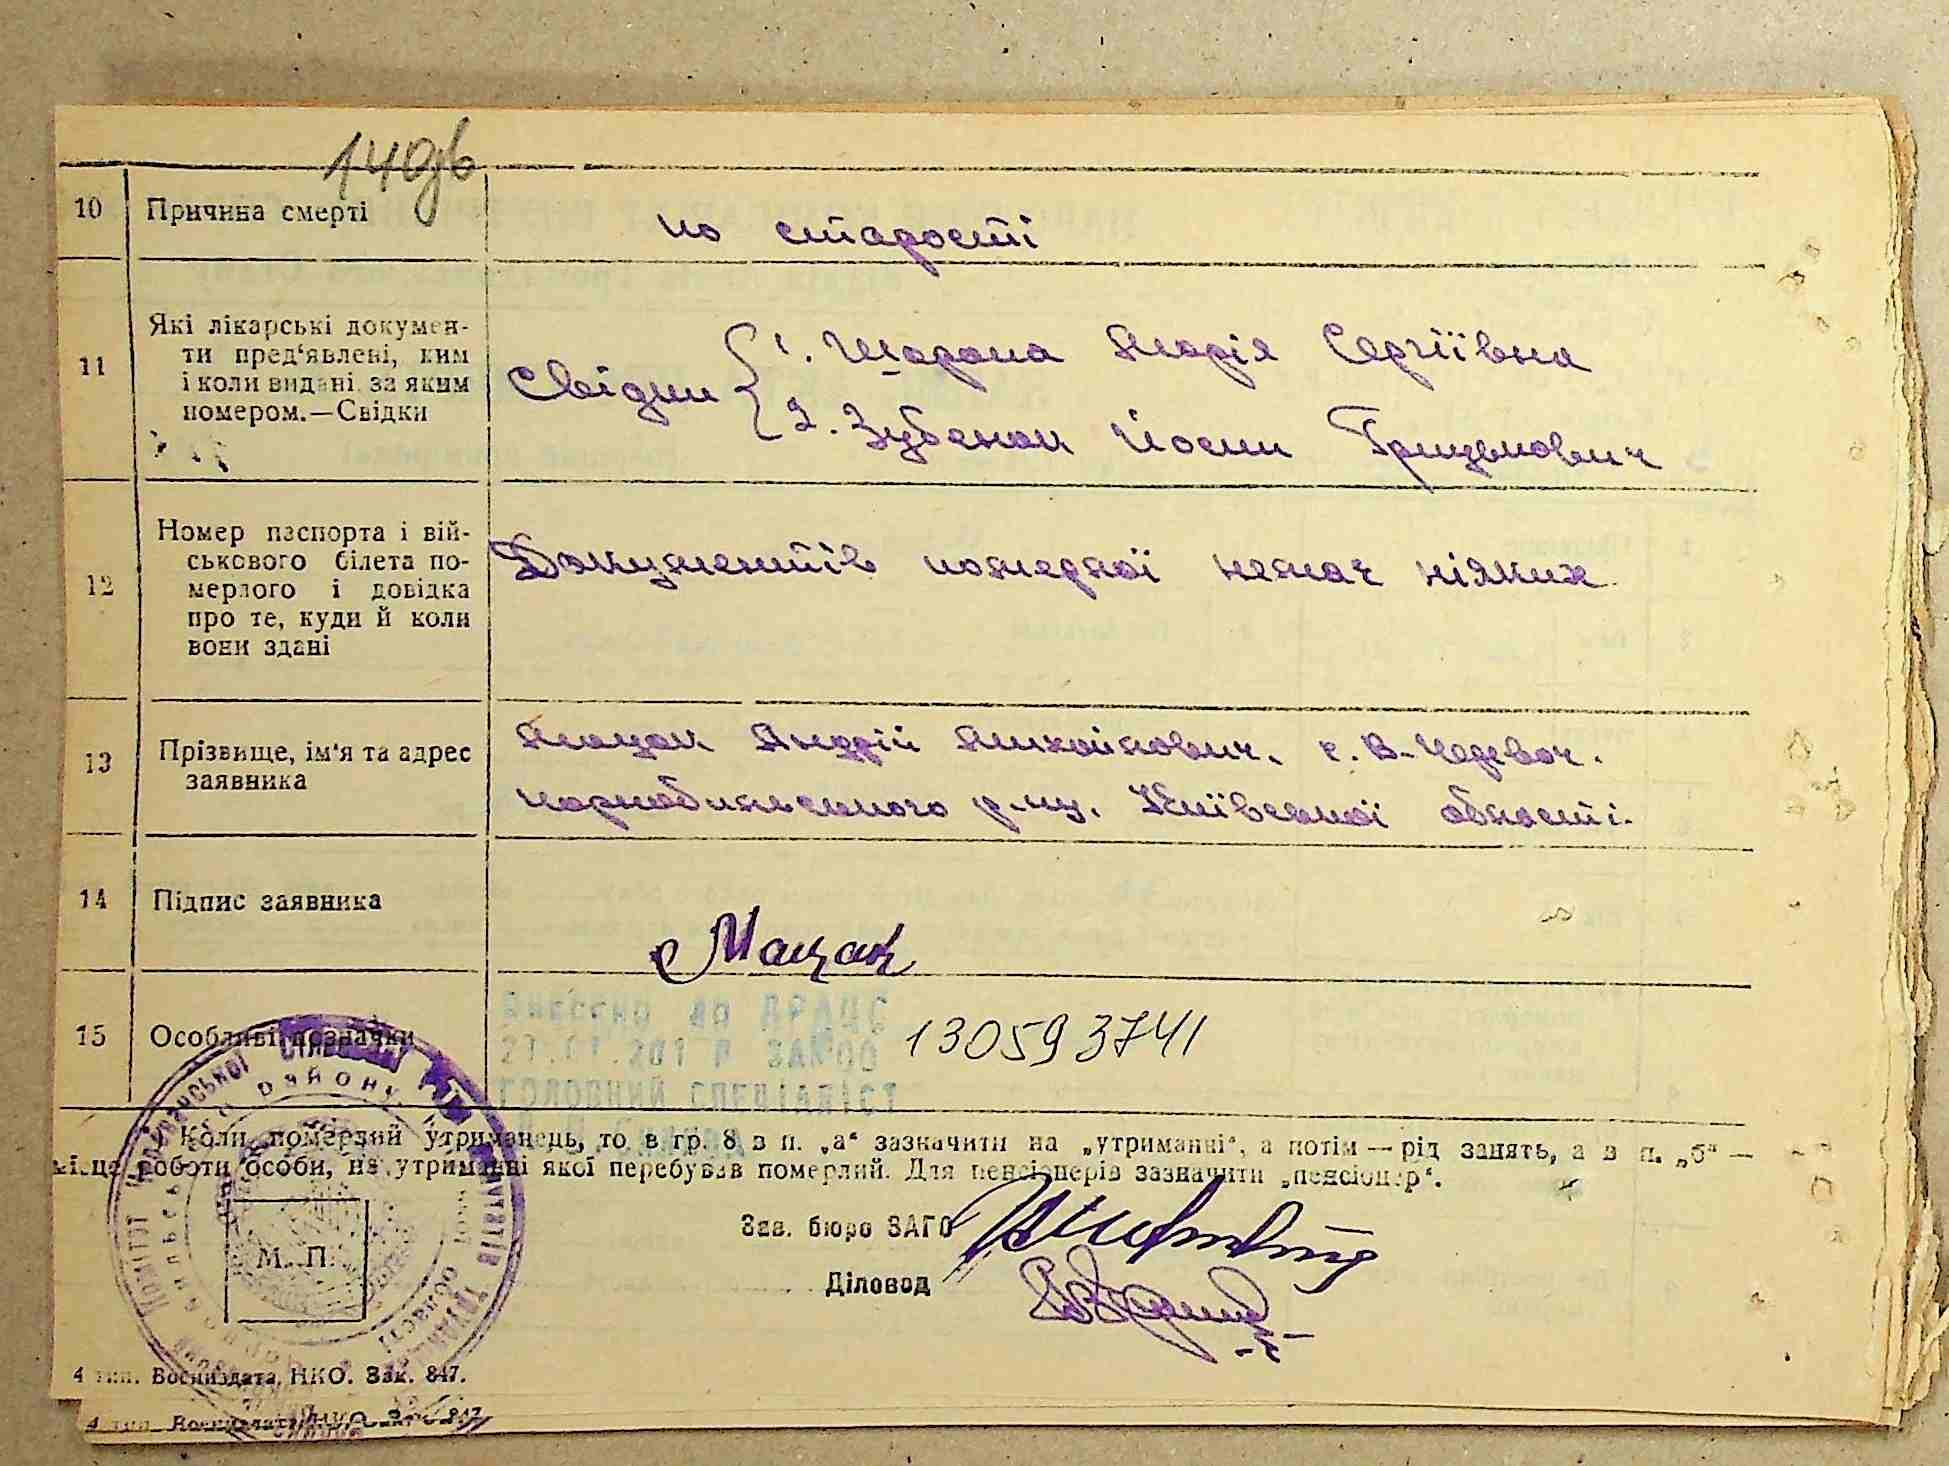 140зв
10 Причина смерті
по старості
11 Які лікарські докумен-
ти пред'явлені, ким
і коли видані за яким
номером.—Свідки
Свідки 1. Шарапа Марія Сергіївна
2. Зубенок Йосип Грицькович
12 Номер паспорта і вій-
ськового білета по-
мерлого і довідка
про те, куди й коли
вони здані
Документів померлої немає ніяких
13 Прізвище, ім'я та адрес
заявника
Мацак Андрій Михайлович. с. В-Черевач.
Чорнобильського р-ну. Київської області.
14 Підпис заявника
Мацак
15 Особливі позначки
Внесено до ДРАЦС
130593741
ГОЛОВНИЙ СПЕЦІАЛІСТ
Коли померлий утриманець, то в гр. 8 з п. „а“ зазначити на „утриманні“, а потім — рід занять, а в п. „б“ —
місце роботи особи, на утриманні якої перебував померлий. Для пенсіонерів зазначити „пенсіонер“.
Зав. бюро ЗАГС
М. П.
Діловод
4 тип. Воениздата, НКО. Зак. 847.
4 тип. Воениздата НКО. Зак. 847.